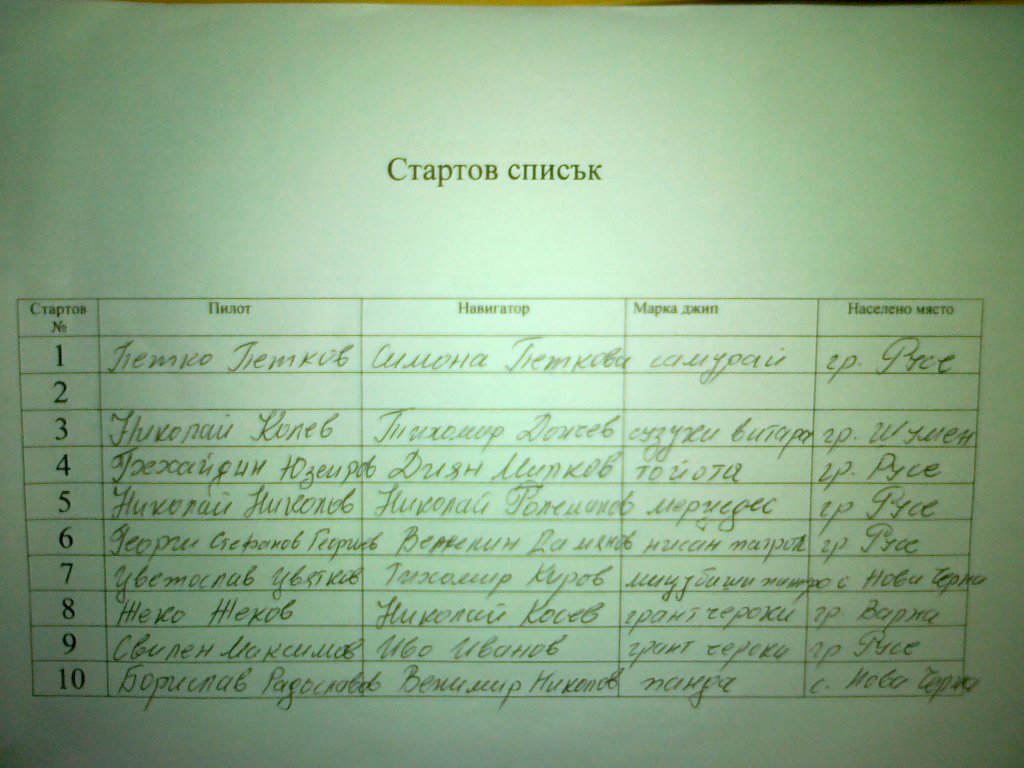 Стартов списък
Стартов № Пилот Навигатор Марка джип Населено място
1 Петко Петков Симона Петкова самурай гр. Русе
2
3 Николай Колев Тихомир Дончев сузуки витара гр. Шумен
4 Юзеиров Диян Милков тойота гр. Русе
5 Николай Николов Николай мерцедес гр Русе
6 Георги Стефанов Георгиев Венелин нисан патрол гр Русе
7 Цветослав Цвятков Тихомир Киров мицубиши с Нова Черна
8 Жеко Жеков Николай Косев грант чероки гр. Варна
9 Свилен Максимов Иво Иванов грант чероки гр Русе
10 Борислав Радославов Велимир Николов панда с. Нова Черна